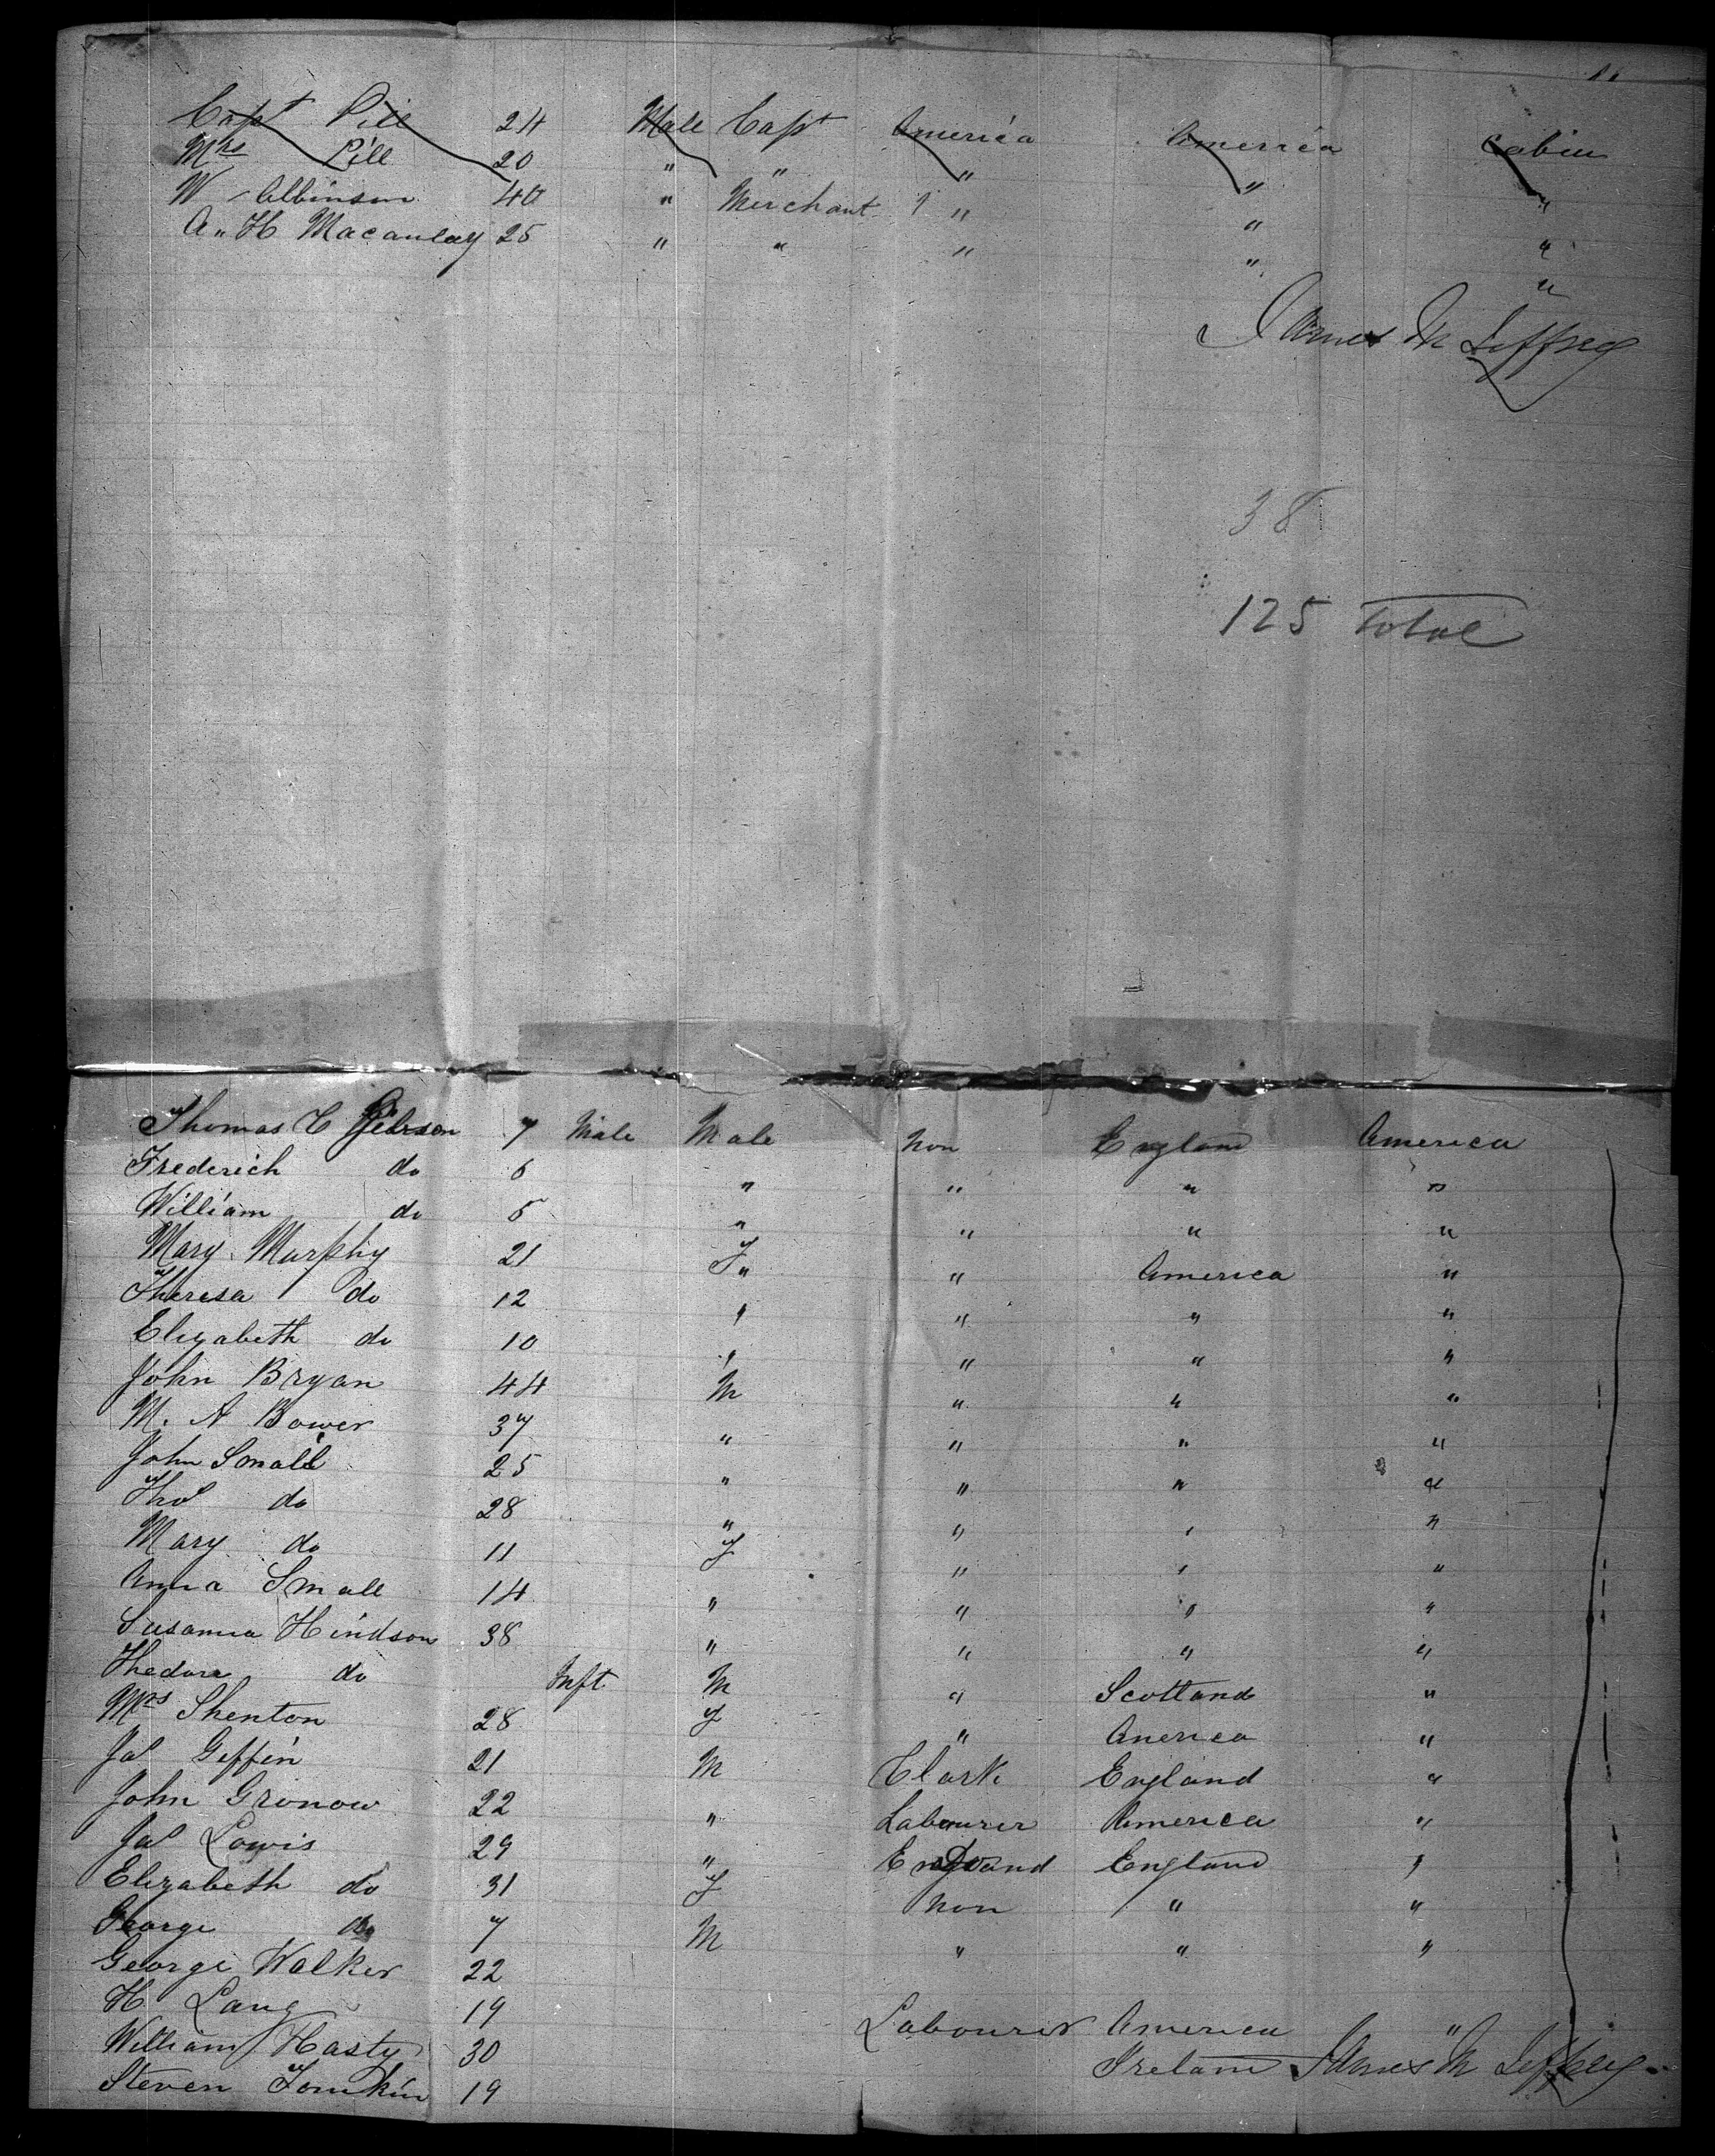 Capt Pill 24 Male Capt America America Cabin
Mrs Pill 20 " " " " "
W Albinson 40 " Merchant " " "
A. H Macaulay 25 " " " " "
James M Jeffrey
38
125 Total
Thomas C 7 Male Male Non England America
Frederich do 6 " " " "
William do 5 " " " "
Mary Murphy 21 F " " America "
Theresa do 12 " " " "
Elizabeth do 10 " " " "
John Bryan 44 M " " "
M. A Bower 37 " " " "
John Small 25 " " " "
Thos do 28 " " " "
Mary do 11 F " " "
Anna Small 14 " " " "
Susanna Hindson 38 " " " "
Thedore do Inft M " Scotland "
Mrs Shenton 28 F " America "
Jas Geffin 21 M Clark England "
John Gronow 22 " Labourer America "
Jas Lowis 29 " England "
Elizabeth do 31 F Non " "
George do 7 M " " "
George Walker 22
H Lang 19
William Hasty 30 Labourer America "
Steven Tomkin 19 Irelan James M Jeffrey